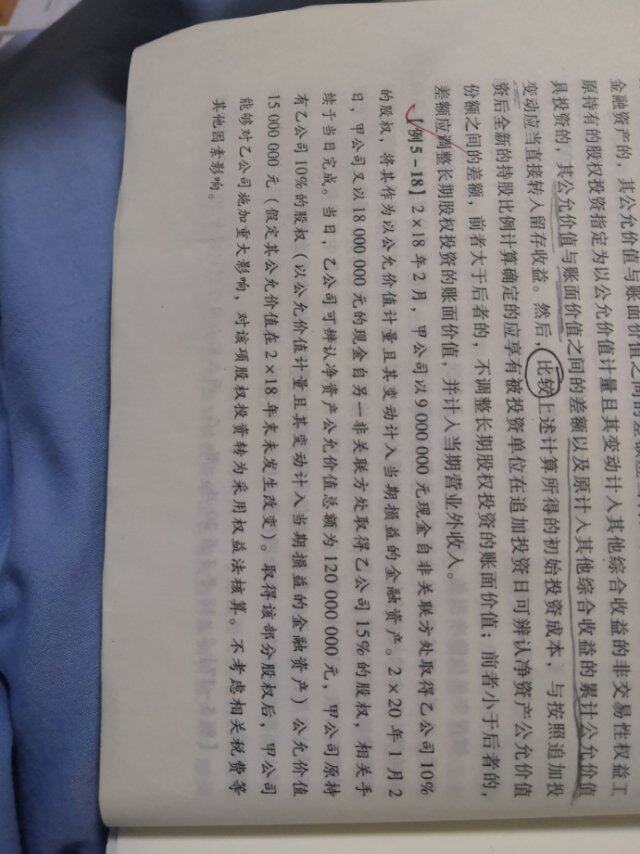 金融资产的，其公允价值与账面价值之间的差额
原持有的股权投资指定为以公允价值计量且其变动计入其他综合收益的非交易性权益工
具投资的，其公允价值与账面价值之间的差额以及原计入其他综合收益的累计公允价值
变动应当直接转入留存收益。然后，比较上述计算所得的初始投资成本，与按照追加投
资后全新的持股比例计算确定的应享有被投资单位在追加投资日可辨认净资产公允价值
份额之间的差额，前者大于后者的，不调整长期股权投资的账面价值；前者小于后者的，
差额应调整长期股权投资的账面价值，并计入当期营业外收入。
【例5-18】2×18年2月，甲公司以9 000 000元现金自非关联方处取得乙公司10%
的股权，将其作为以公允价值计量且其变动计入当期损益的金融资产。2×20年1月2
日，甲公司又以18 000 000元的现金自另一非关联方处取得乙公司15%的股权，相关手
续于当日完成。当日，乙公司可辨认净资产公允价值总额为120 000 000元，甲公司原持
有乙公司10%的股权（以公允价值计量且其变动计入当期损益的金融资产）公允价值
15 000 000元（假定其公允价值在2×18年末未发生改变）。取得该部分股权后，甲公司
能够对乙公司施加重大影响，对该项股权投资转为采用权益法核算。不考虑相关税费等
其他因素影响。